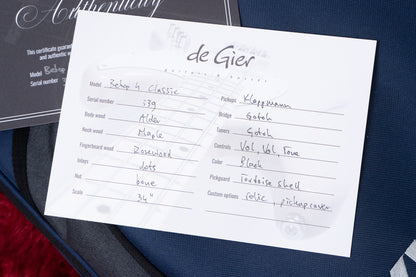 Authenticity
This certificate guarant
and authentic
Model Bebop
Serial number
de Gier
Model Bebop 4 Classic
Serial number 139
Body wood Alder
Neck wood Maple
Fingerboard wood Rosewood
Inlays dots
Nut bone
Scale 34"
Pickups Kloppmann
Bridge Gotoh
Tuners Gotoh
Controls Vol, Vol, Tone
Color Black
Pickguard Tortoise shell
Custom options relic, pickupcover